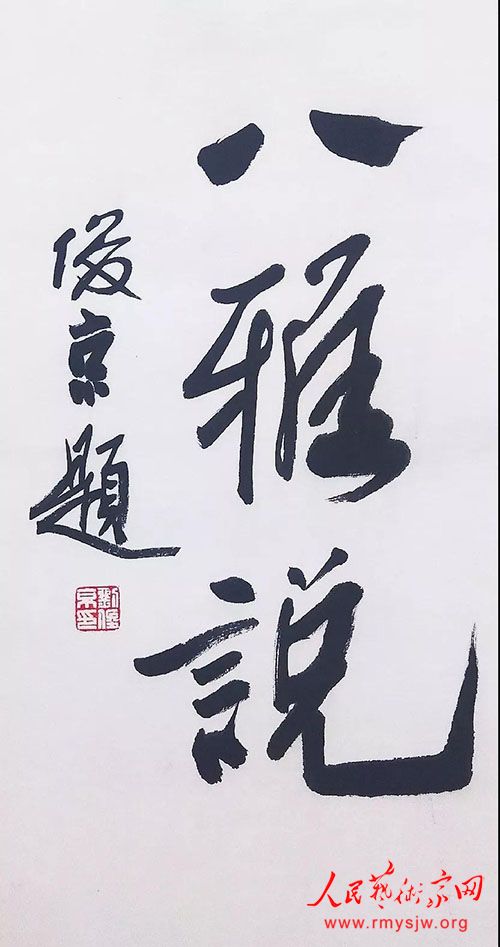 八雅說
俊京題
劉俊京印
人民藝術家网
www.rmysjw.org